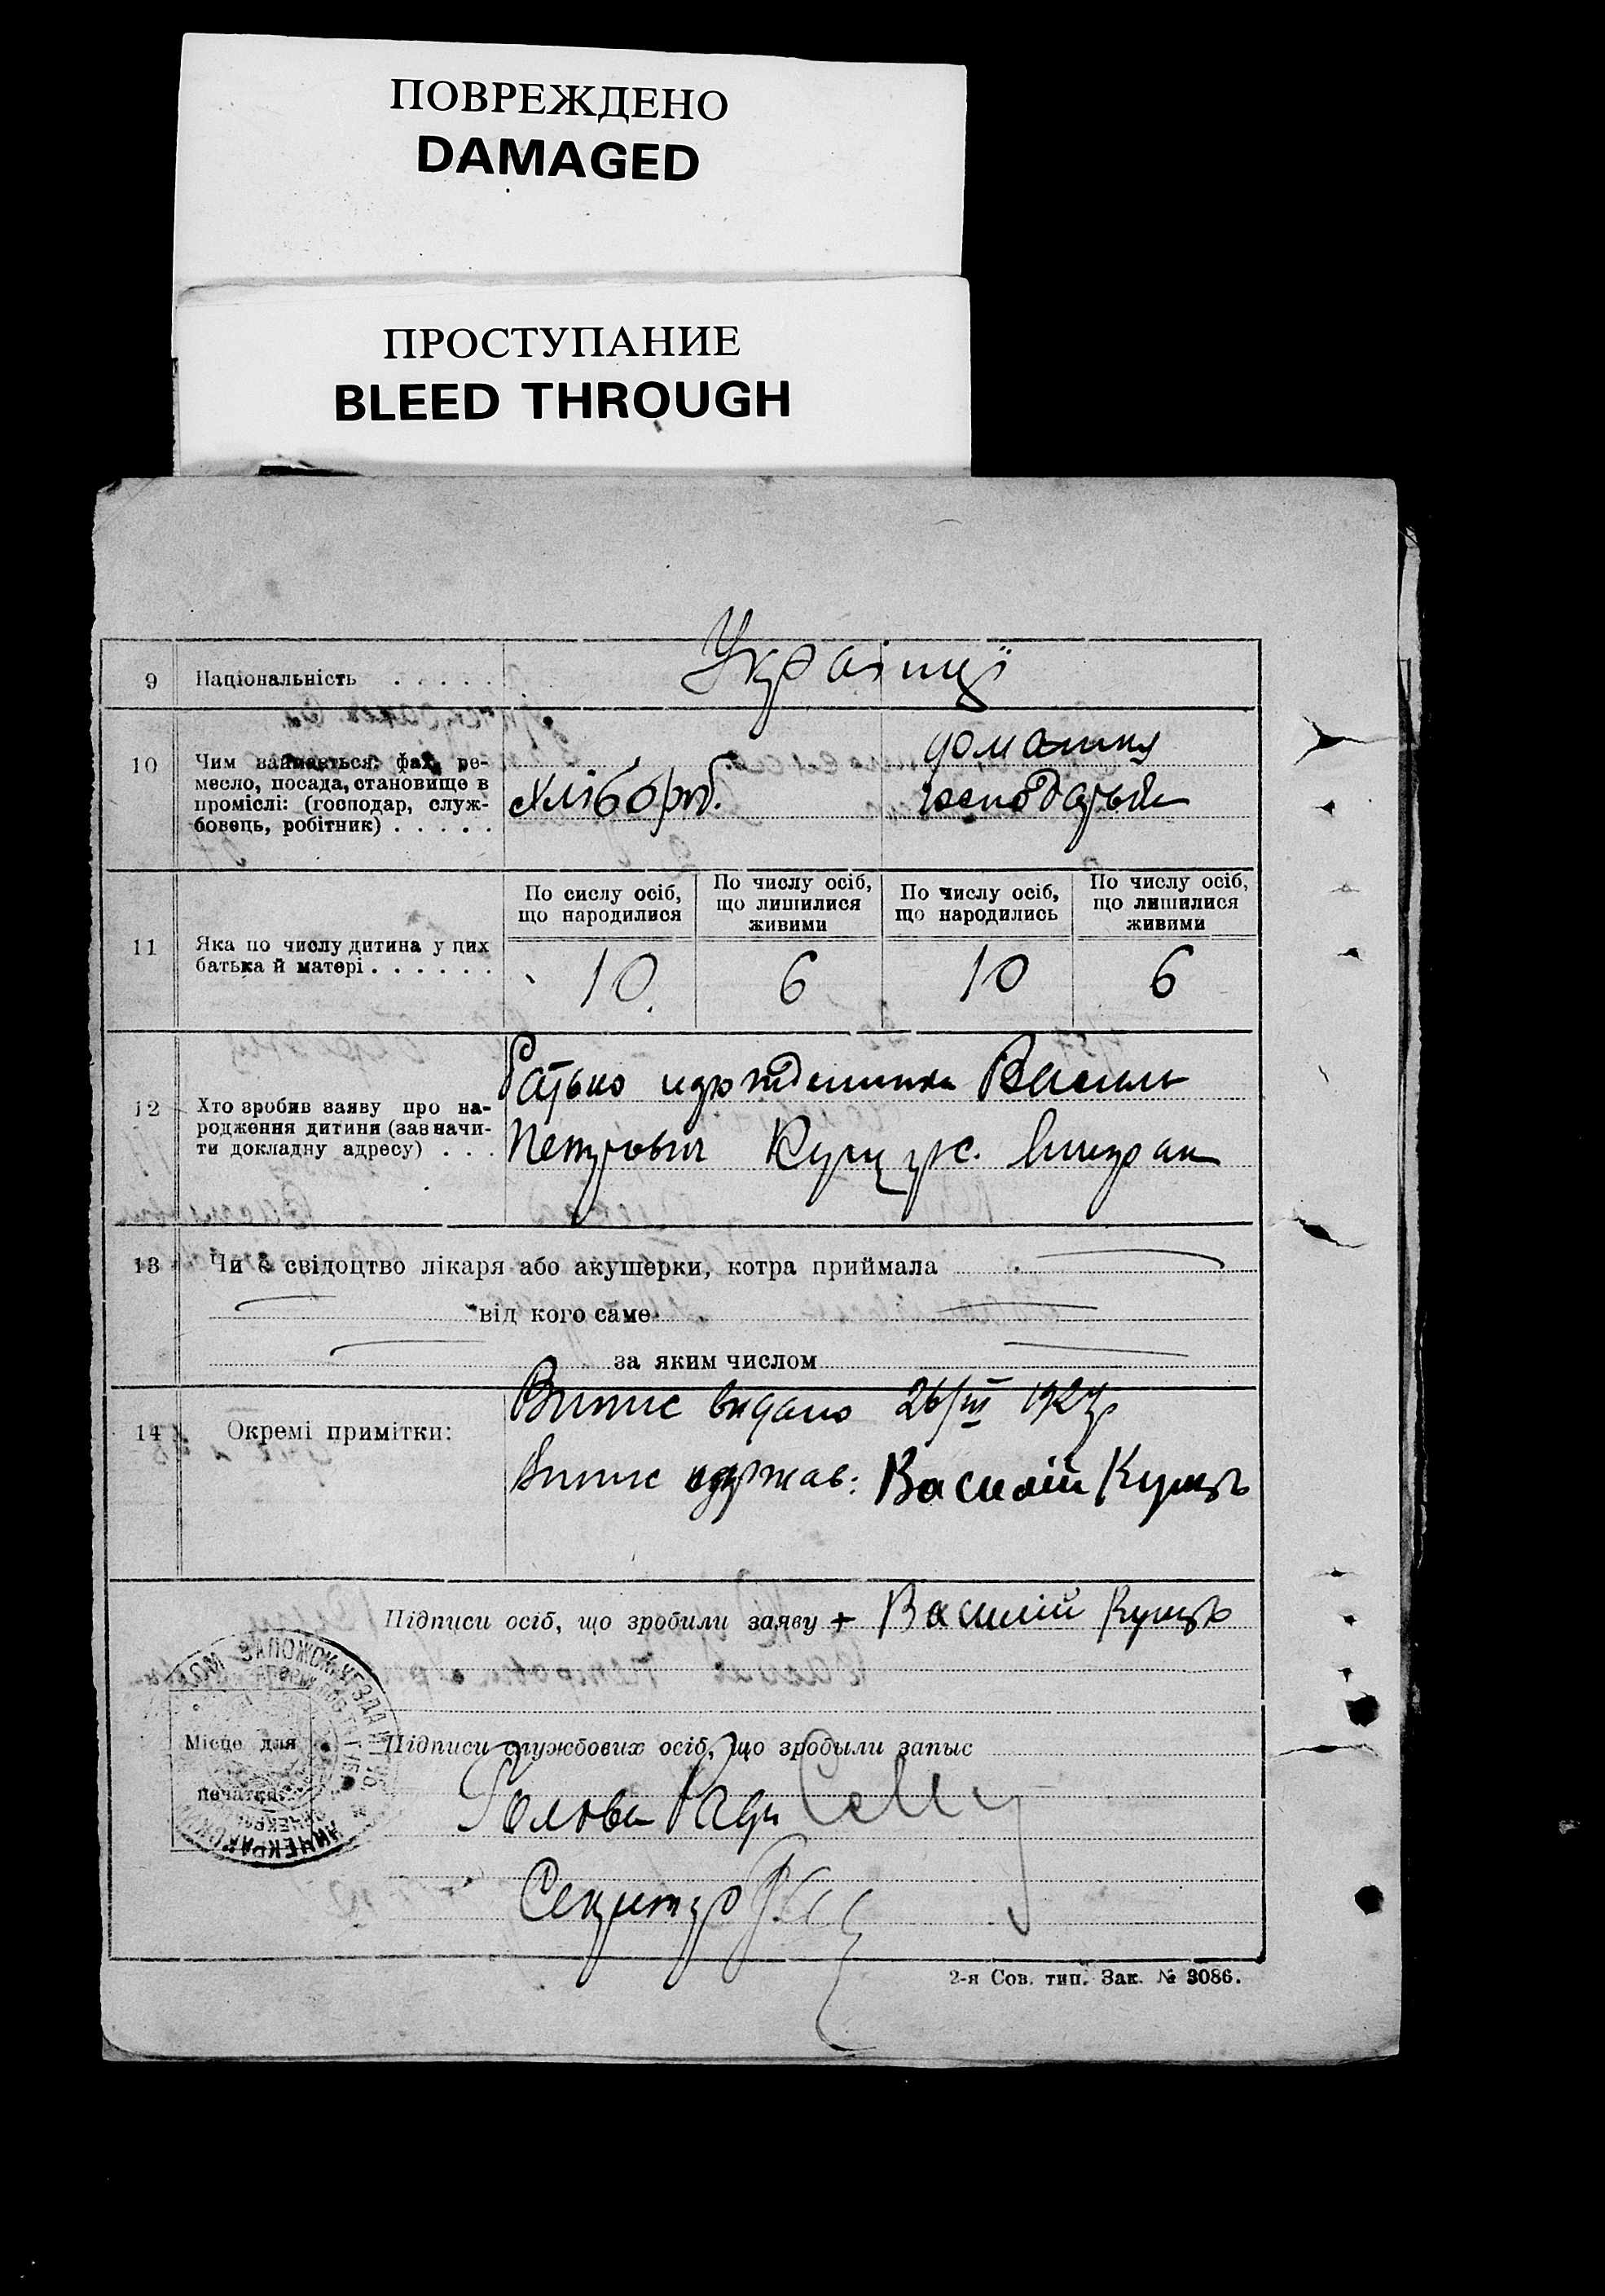 ПОВРЕЖДЕНО
DAMAGED
ПРОСТУПАНИЕ
BLEED THROUGH
9 Національність . . . . . Українці
10 Чим займається: фах, ре-
месло, посада, становище в
проміслі: (господар, служ-
бовець, робітник) . . . . .
хлібороб.
домашня
господарька
11 Яка по числу дитина у цих
батька й матері . . . . . .
По сислу осіб,
що народилися
По числу осіб,
що лишилися
живими
По числу осіб,
що народились
По числу осіб,
що лишилися
живими
10 6 10 6
12 Хто зробив заяву про на-
родження дитини (зазначи-
ти докладну адресу) . . .
Батько Василь
Петрович Куць с.
13 Чи є свідоцтво лікаря або акушерки, котра приймала
від кого саме
за яким числом
14 Окремі примітки:
Випис видано 26/III 192
Випис одержав: Василій Куцъ
Підписи осіб, що зробили заяву + Василій Куцъ
Місце для
печатки
Підписи службових осіб, що зробыли запыс
Голова Ради
Секретар
2-я Сов. тип. Зак. № 3086.